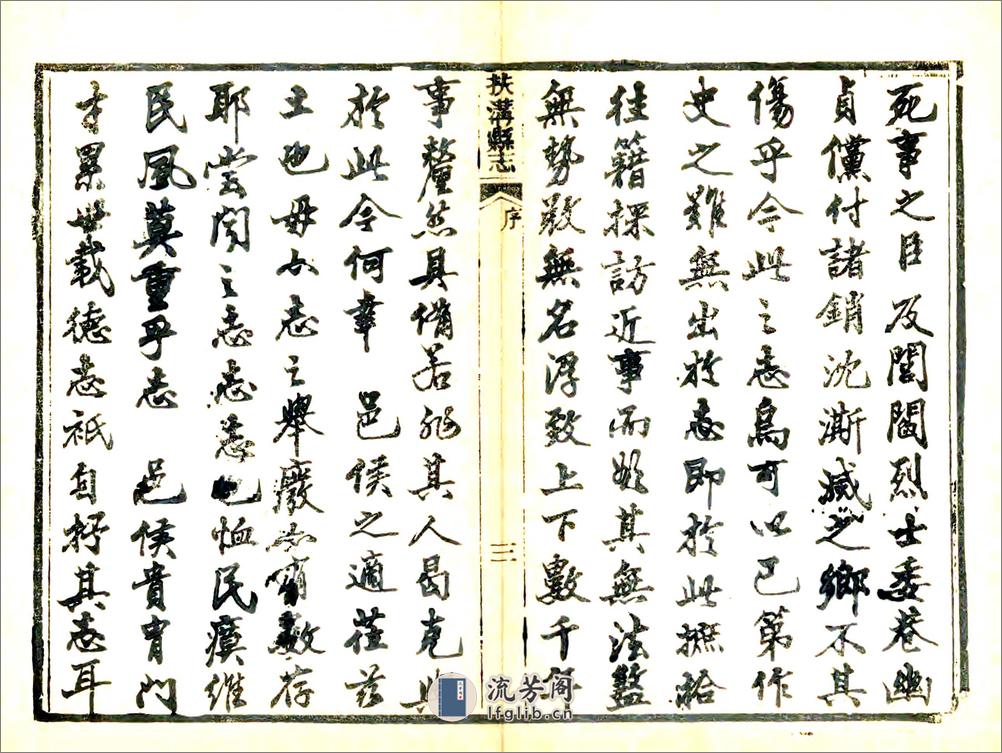 死事之臣及閭閻烈士委巷幽
貞儻付諸銷沈漸滅之鄉不其
傷乎今此之志烏可以已第作
史之難無出於志即於此摭拾
往籍探訪近事而欲其無法鑒
無勢毀無名浮致上下數千年
扶溝縣志
序
三
事釐然具備若非其人曷克與
於此今何幸 邑侯之適蒞茲
土也毋亦志之舉廢亦有數存
耶嘗聞之志志也恤民瘼維
民風莫重乎志 邑侯貴胄門
才累世載德志祇自抒其志耳
流芳阁
lfglib.cn